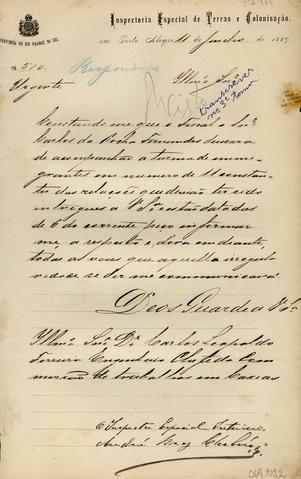 PROVINCIA DO RIO GRANDE DO SUL
Inspectoria Especial de Terras e Colonisação,
em Porto Alegre 11 de Junho de 1889
N. 510
Respondido
Urgente
Illmo Snr.
Visto
transcrever
nesse Tomo
Constando me que o Fiscal o Snr.
Carlos da Rocha Fernandes deixara
de acompanhar a turma de emmi-
grantes em numero de 11 constan-
tes das relações que devião ter sido
entregues a V. Sa. e estão datadas
de 6 do corrente, peço informar
me, a respeito e, d'ora em deante,
todas as vezes que aquella irregula
ridade se der me communicará
Deos Guarde a V. Sa.
Illmo Snr. Dr. Carlos Leopoldo
Ferreira Engenheiro Chefe da Com
missão de trabalhos em Caxias
O Inspector Especial Interino.
André